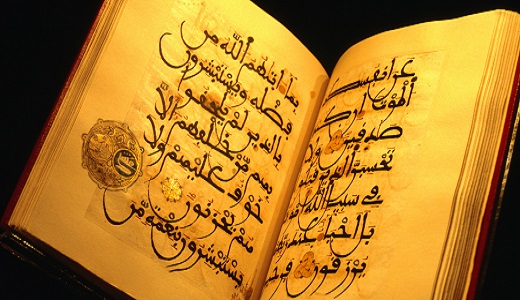 عن
الموت ان
صدقين ولا
تحسبن الذين
في سبيل الله
بل احياء عند
يرزقون
بما اتيهم الله من
فضله ويستبشرون
بالذين لم يلحقوا
بهم من خلفهم الا
خوف عليهم ولا
هم يحزنون
يستبشرون بنعمة من